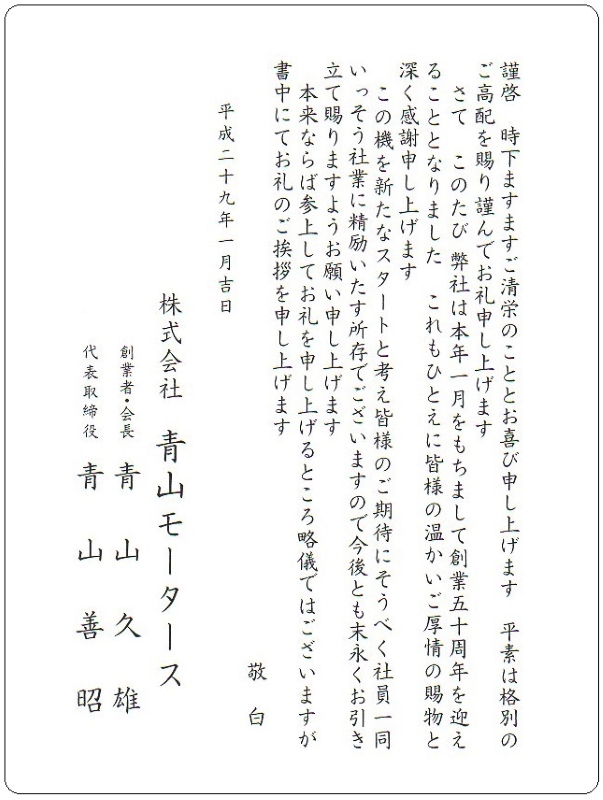 謹啓　時下ますますご清栄のこととお喜び申し上げます　平素は格別の
ご高配を賜り謹んでお礼申し上げます
さて　このたび　弊社は本年一月をもちまして創業五十周年を迎え
ることとなりました　これもひとえに皆様の温かいご厚情の賜物と
深く感謝申し上げます
この機を新たなスタートと考え皆様のご期待にそうべく社員一同
いっそう社業に精励いたす所存でございますので今後とも末永くお引き
立て賜りますようお願い申し上げます
本来ならば参上してお礼を申し上げるところ略儀ではございますが
書中にてお礼のご挨拶を申し上げます
敬白
平成二十九年一月吉日
株式会社　青山モータース
創業者・会長　青山久雄
代表取締役　青山善昭